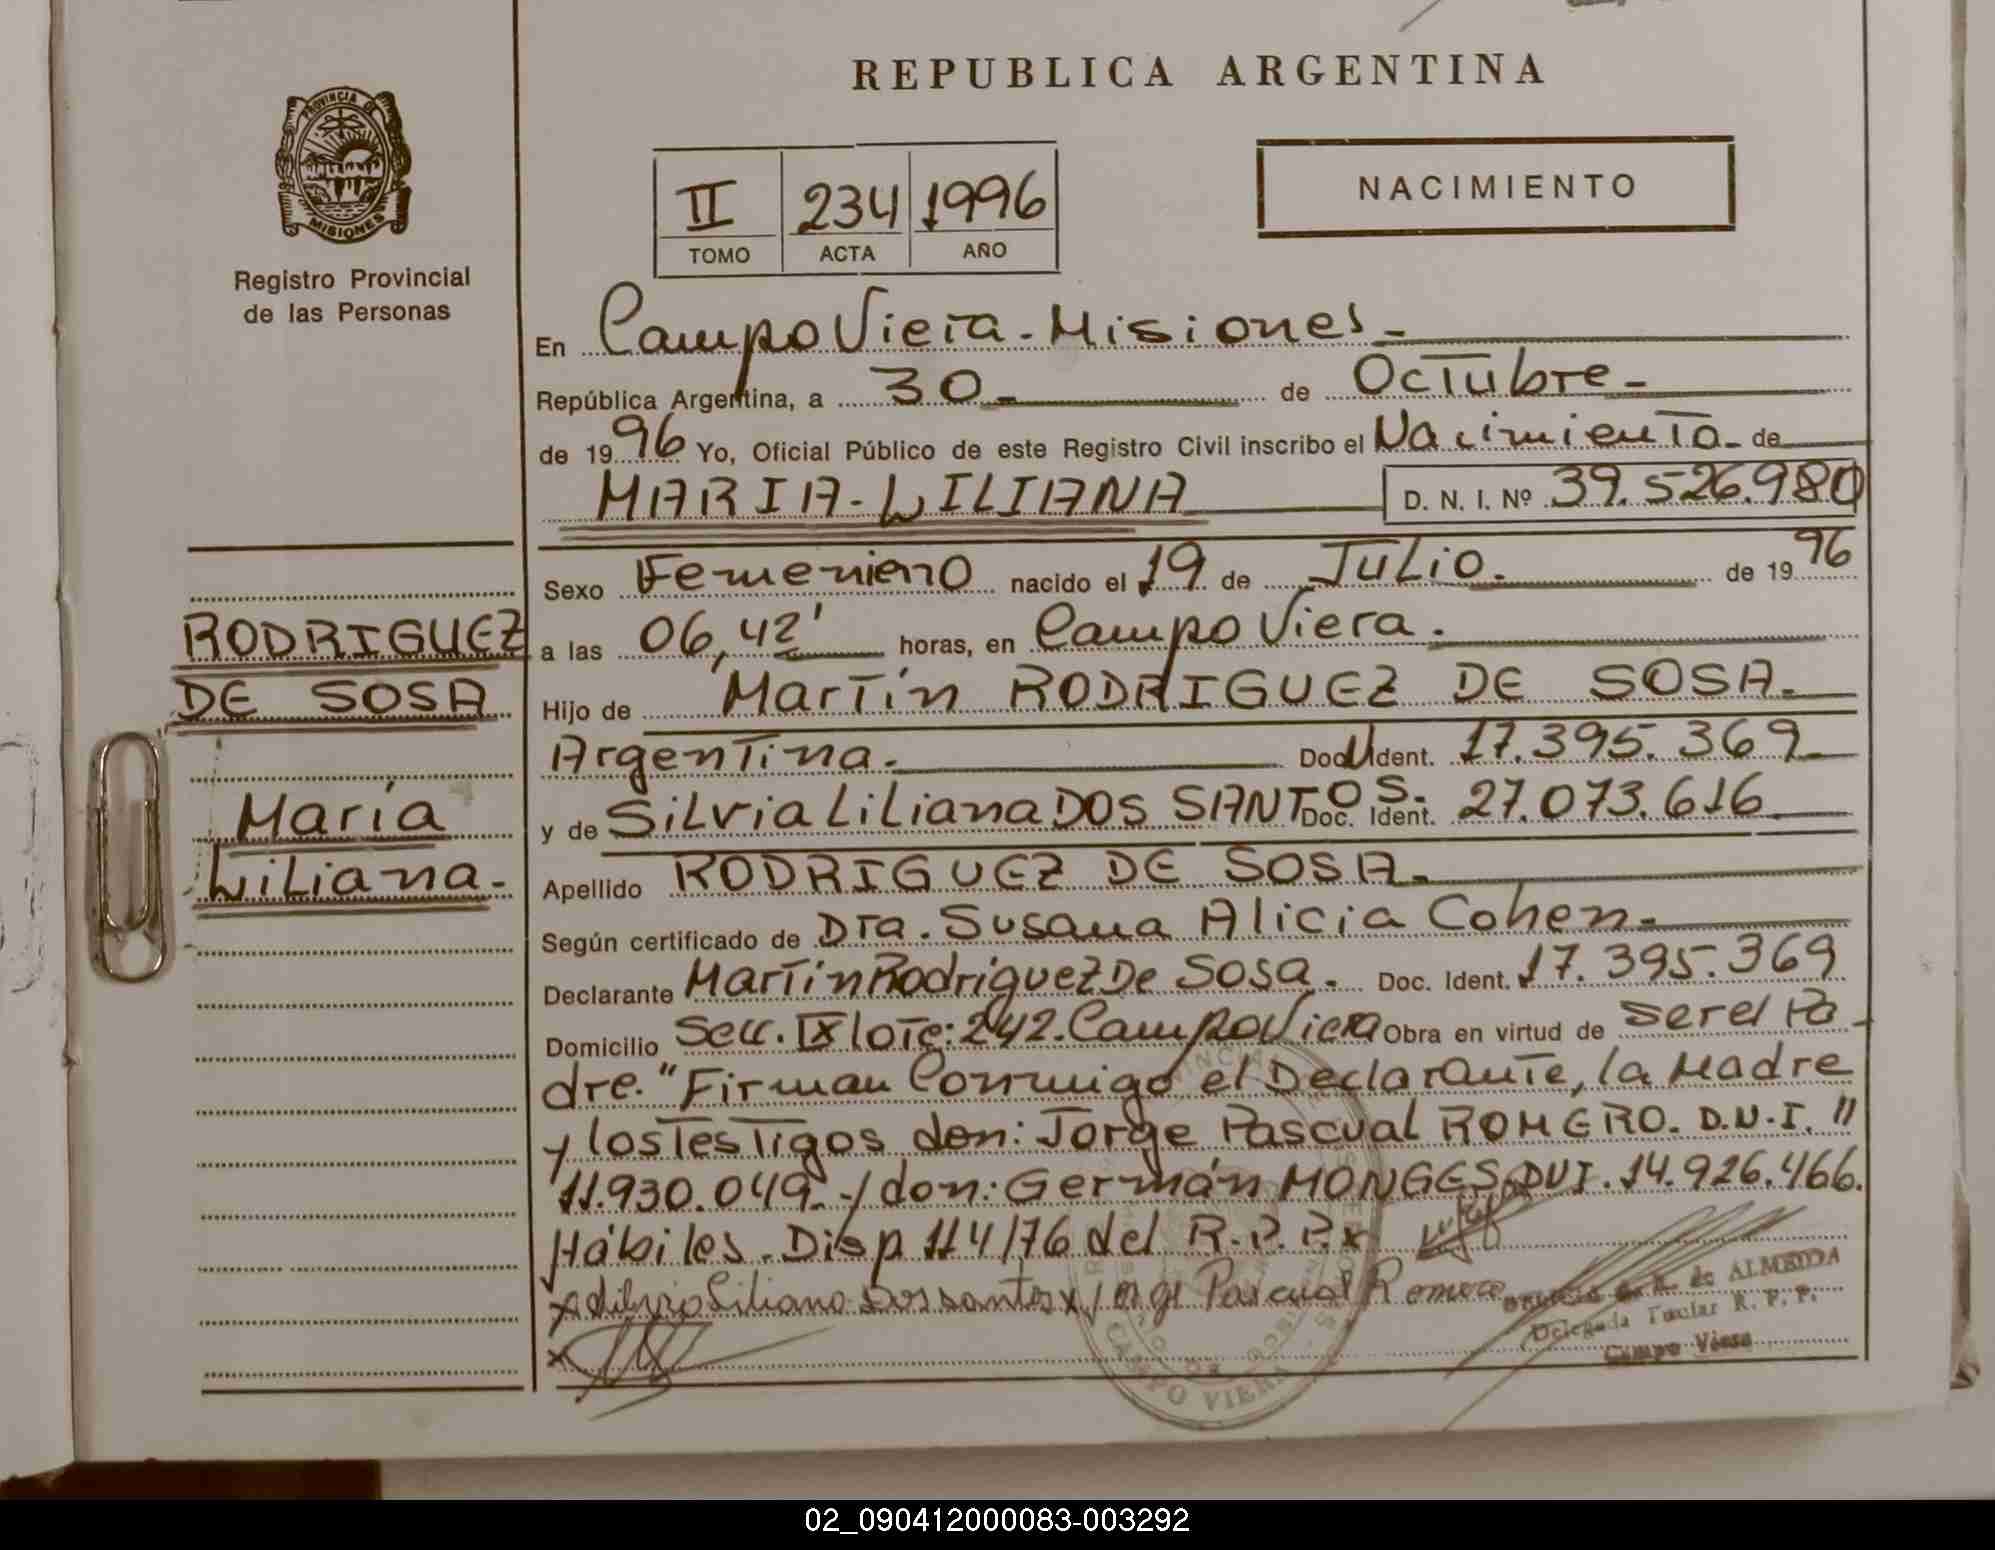 REPUBLICA ARGENTINA
PROVINCIA DE
MISIONES
Registro Provincial
de las Personas
II 234 1996
TOMO ACTA AÑO
NACIMIENTO
En Campo Viera - Misiones -
República Argentina, a 30 - de Octubre -
de 1996 Yo, Oficial Público de este Registro Civil inscribo el Nacimiento - de
MARIA - WILIANA D. N. I. Nº 39.526.980
Sexo Femenieno nacido el 19 de Julio. de 1996
RODRIGUEZ
DE SOSA
María
Wiliana -
a las 06,42' horas, en Campo Viera.
Hijo de Martín RODRIGUEZ DE SOSA -
Argentina. Doc. Ident. 17.395.369
y de Silvia Liliana DOS SANTOS. Doc. Ident. 27.073.616
Apellido RODRIGUEZ DE SOSA -
Según certificado de Dra. Susana Alicia Cohen -
Declarante Martín Rodriguez De Sosa. Doc. Ident. 17.395.369
Domicilio Secc. IX lote: 242. Campo Viera Obra en virtud de ser el Pa -
dre." Firman Conmigo el Declarante, la Madre
y los Testigos don: Jorge Pascual ROMERO. D.N.I. "
11.930.049 - y don: Germán MONGES DNI. 14.926.466.
Hábiles. Disp 114/76 del R.P.P. x
x Silvia Liliana Dos santos x Jorge Pascual Romero
de ALMEIDA
Delegada Titular R. P. P.
Campo Viera
x
CAMPO VIERA
02_090412000083-003292